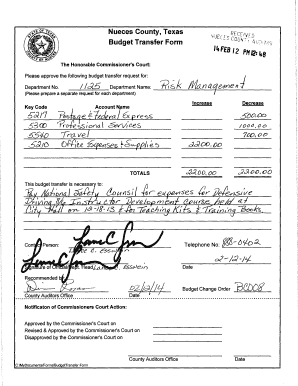 Nueces County, Texas
Budget Transfer Form
RECEIVED
NUECES COUNTY AUDITOR
14 FEB 12 PM 12:48
The Honorable Commissioner's Court:
Please approve the following budget transfer request for:
Department No. 1125 Department Name: Risk Management
(Please prepare a separate request for each department)
Key Code Account Name Increase Decrease
5217 Postage & Federal Express 500.00
5310 Professional Services 1000.00
5540 Travel 700.00
5210 Office Expenses & Supplies 2200.00
TOTALS 2200.00 2200.00
This budget transfer is necessary to:
Pay National Safety Counsil for expenses for Defensive
Driving My Instructor Development Course, held at
City Hall on 12-18-13 & for Teaching Kits & Training Books.
Person: Telephone No.
2-12-14
Date
Recommended by
02/12/14 Budget Change Order
County Auditors Office Date
Notification of Commissioners Court Action:
Approved by the Commissioner's Court on
Revised & Approved by the Commissioner's Court on
Disapproved by the Commissioner's Court on
County Auditors Office Date